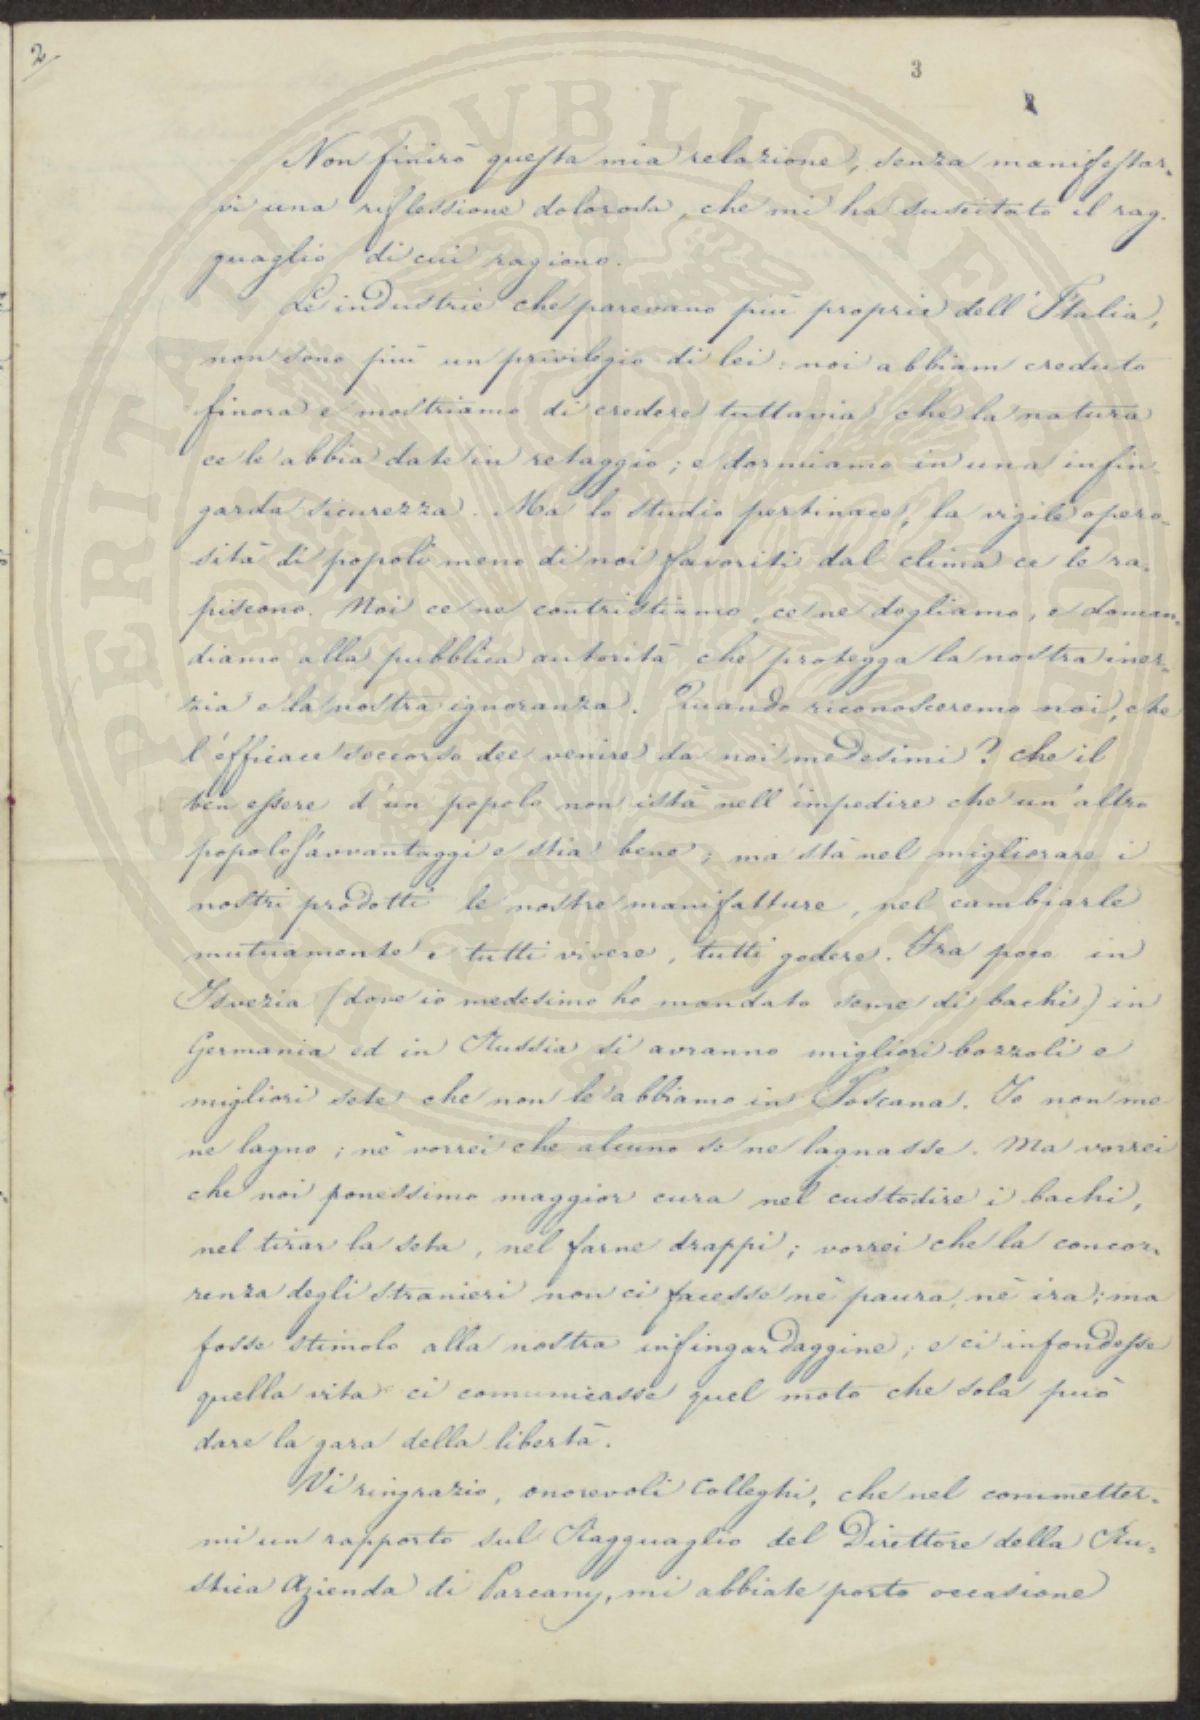 2
3
2
Non finirò questa mia relazione, senza manifestar-
vi una riflessione dolorosa, che mi ha suscitato il rag-
guaglio di cui ragiono.
Le industrie che parevano più proprie dell'Italia,
non sono più un privilegio di lei: noi abbiam creduto
finora e mostriamo di credere tuttavia che la natura
ce le abbia date in retaggio; e dormiamo in una infin-
garda sicurezza. Ma lo studio pertinace, la vigile opero-
sità di popoli meno di noi favoriti dal clima ce le ra-
piscono. Noi ce ne contristiamo, ce ne dogliamo, e doman-
diamo alla pubblica autorità che protegga la nostra iner-
zia e la nostra ignoranza. Quando riconosceremo noi, che
l'efficace soccorso dee venire da noi medesimi? che il
ben essere d'un popolo non istà nell'impedire che un'altro
popolo s'avvantaggi e stia bene; ma stà nel migliorare i
nostri prodotti le nostre manifatture, nel cambiarle
mutuamente e tutti vivere, tutti godere. Fra poco in
Isvezia (dove io medesimo ho mandato seme di bachi) in
Germania ed in Russia si avranno migliori bozzoli e
migliori sete che non le abbiamo in Toscana. Io non me
ne lagno; nè vorrei che alcuno se ne lagnasse. Ma vorrei
che noi ponessimo maggior cura nel custodire i bachi,
nel tirar la seta, nel farne drappi; vorrei che la concor-
renza degli stranieri non ci facesse nè paura, nè ira; ma
fosse stimolo alla nostra infingardaggine; e ci infondesse
quella vita ci comunicasse quel moto che sola può
dare la gara della libertà.
Vi ringrazio, onorevoli Colleghi, che nel commetter-
mi un rapporto sul Ragguaglio del Direttore della Ru-
stica Azienda di Parcany, mi abbiate porto occasione